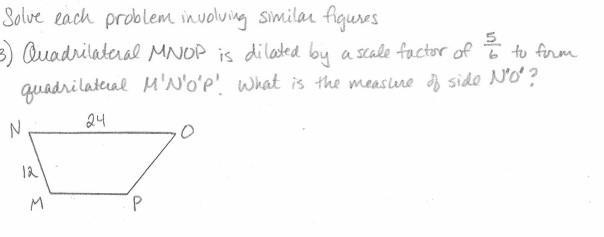 Solve each problem involving similar figures
3) Quadrilateral MNOP is dilated by a scale factor of 5/6 to form
quadrilateral M'N'O'P'. What is the measure of side N'O'?
N 24 O
12
M P